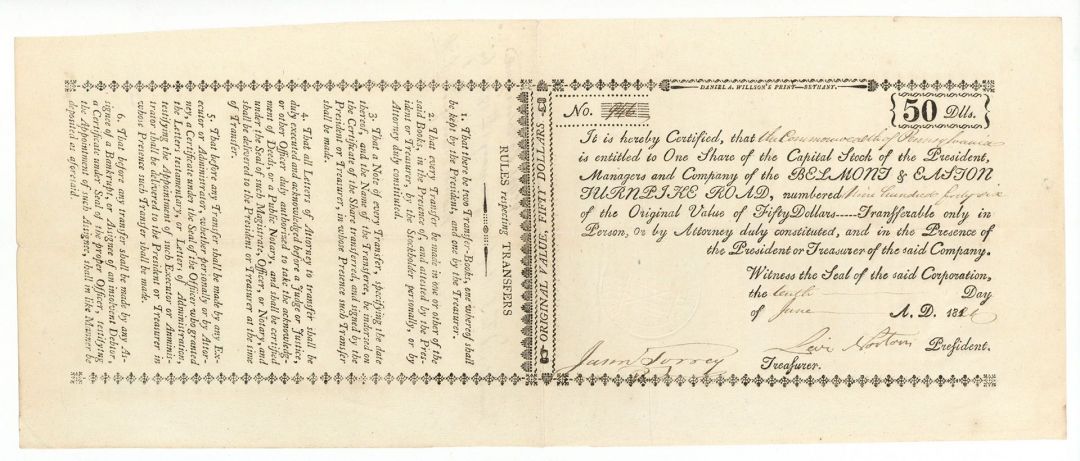 DANIEL A. WILLSON'S PRINT—BETHANY.
No. 946
50 Dlls.
It is hereby Certified, that the Commonwealth of Pennsylvania
is entitled to One Share of the Capital Stock of the President,
Managers and Company of the BELMONT & EASTON
TURNPIKE ROAD, numbered Nine hundred forty six
of the Original Value of Fifty Dollars----Transferable only in
Person, or by Attorney duly constituted, and in the Presence of
the President or Treasurer of the said Company.
Witness the Seal of the said Corporation,
the tenth Day
of June A. D. 1826
President.
Jason Torrey
Treasurer.
ORIGINAL VALUE, FIFTY DOLLARS
RULES respecting TRANSFERS
1. That there be two Transfer-Books, one whereof shall
be kept by the President, and one by the Treasurer.
2. That every Transfer be made in one or other of the
said Books, in the Presence of, and attested by the Pres-
ident or Treasurer, by the Stockholder personally, or by
Attorney duly constituted.
3. That a Note of every Transfer, specifying the date
thereof, and the Name of the Transferee, be indorsed on
the Certificate of the Share transferred, and signed by the
President or Treasurer, in whose Presence such Transfer
shall be made.
4. That all Letters of Attorney to transfer shall be
duly executed and acknowledged before a Judge or Justice,
or other Officer duly authorized to take the acknowledg-
ment of Deeds, or a Public Notary, and shall be certified
under the Seal of such Magistrate, Officer, or Notary, and
shall be delivered to the President or Treasurer at the time
of Transfer.
5. That before any Transfer shall be made by any Ex-
ecutor or Administrator, whether personally or by Attor-
ney, a Certificate under the Seal of the Officer who granted
the Letters testamentary, or Letters of Administration,
testifying the Appointment of such Executor or Adminis-
trator shall be delivered to the President or Treasurer in
whose Presence such Transfer shall be made.
6. That before any transfer shall be made by any As-
signee of a Bankrupt, or Assignee of an insolvent Debtor,
a Certificate under Seal of the proper Officer, testifying
the Appointment of such Assignee, shall in like Manner be
deposited as aforesaid.